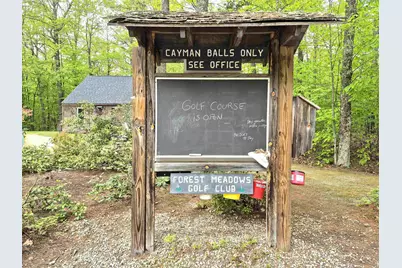 CAYMAN BALLS ONLY
SEE OFFICE
GOLF COURSE
IS OPEN
FOREST MEADOWS
GOLF CLUB